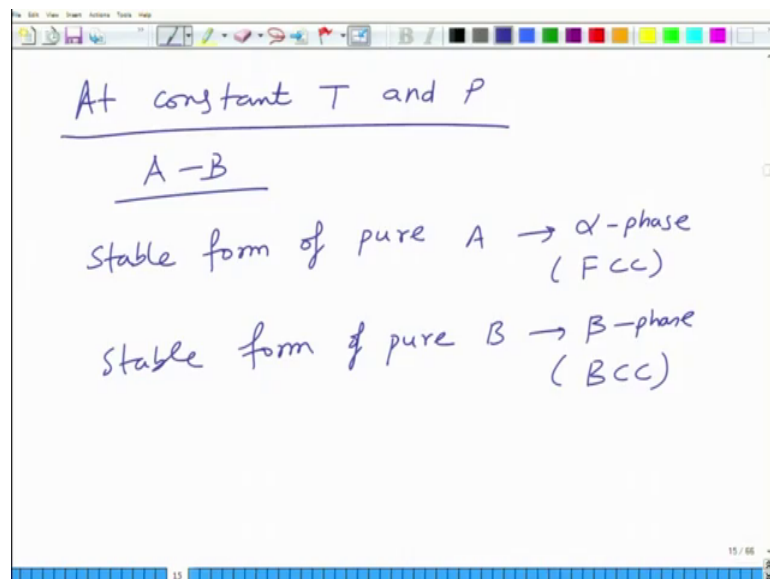 File Edit View Insert Actions Tools Help
At constant T and P
A-B
Stable form of pure A → α-phase
(FCC)
Stable form of pure B → β-phase
(BCC)
15 / 66
15